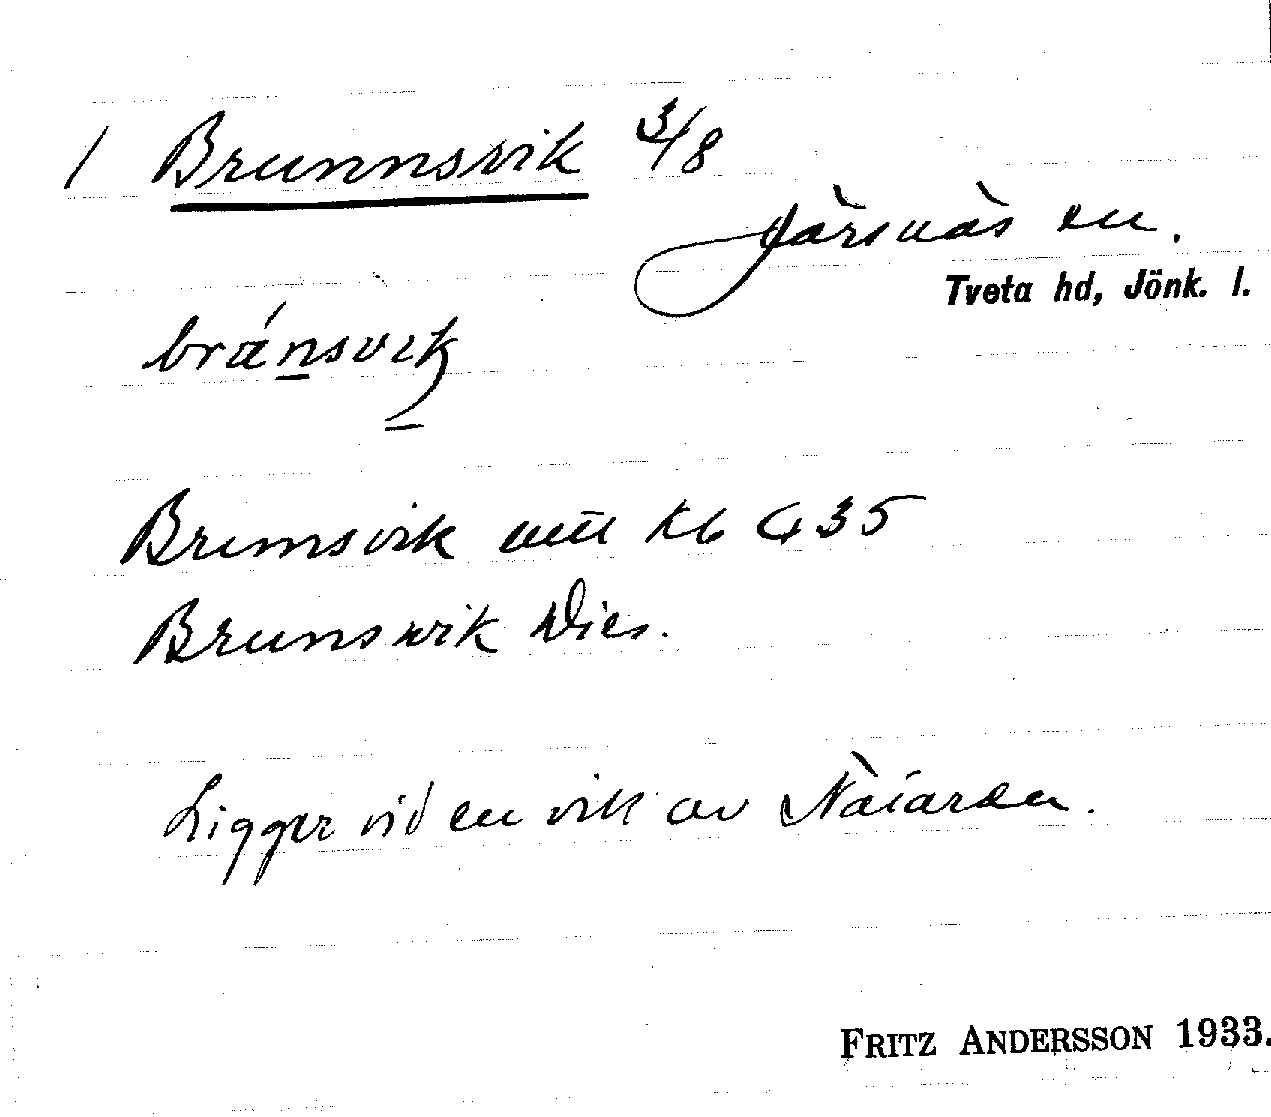 / Brunnsvik 3/8
Järsnäs sn.
Tveta hd, Jönk. l.
Brunsvik Kb C 35
Brunswik Wies.
Ligger vid en vik av Nätaren.
FRITZ ANDERSSON 1933.